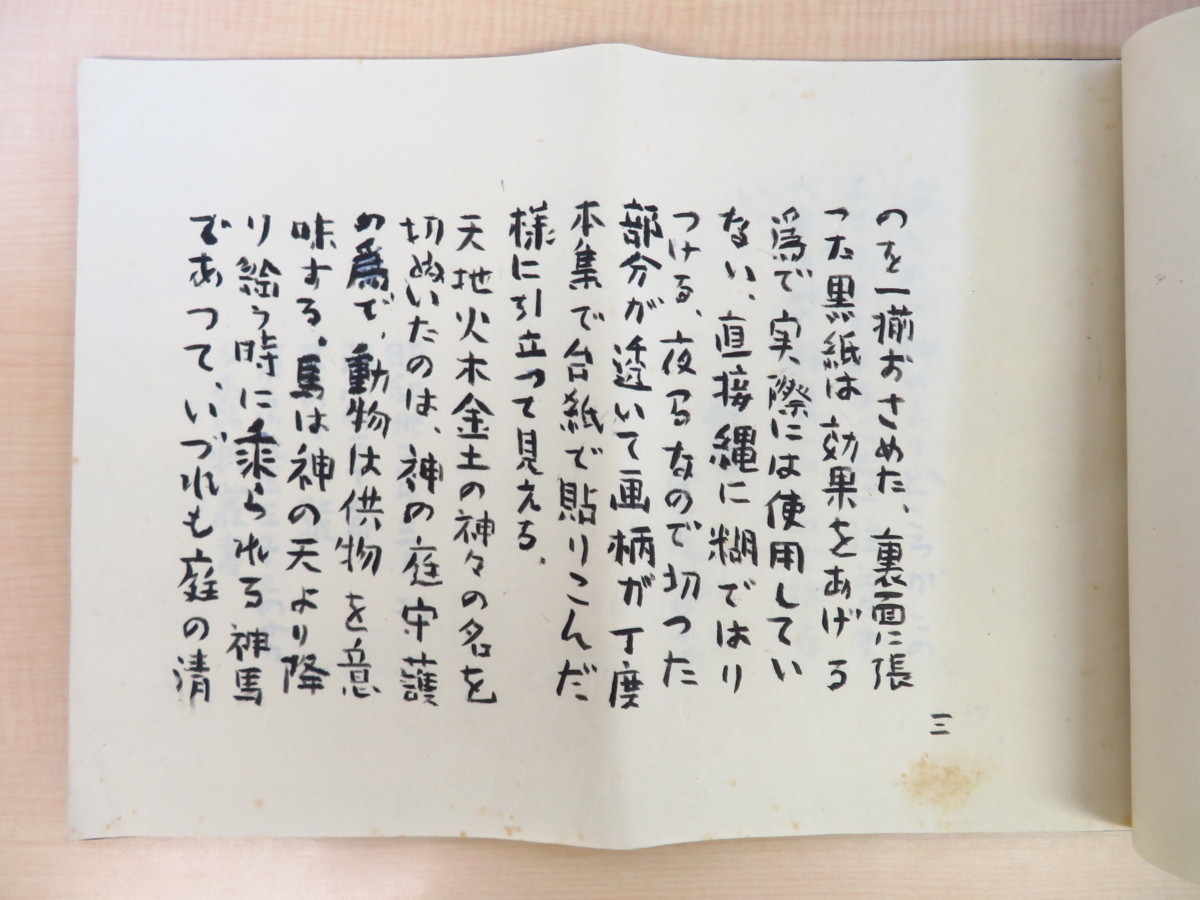 のを一揃おさめた、裏面に張
つた黒紙は効果をあげる
為で実際には使用してい
ない、直接縄に糊ではり
つける、夜るなので切つた
部分が透いて画柄が丁度
本集で台紙で貼りこんだ
様に引立つて見える、
天地火木金土の神々の名を
切ぬいたのは、神の庭守護
の為で、動物は供物を意
味する。馬は神の天より降
り給う時に乗られる神馬
であつて、いづれも庭の清
三